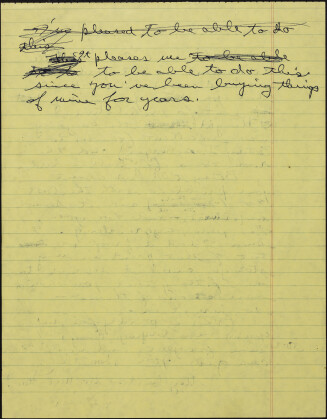 I'm pleased to be able to do
this
It pleases me to be able
to be able to do this
since you've been buying things
of mine for years.